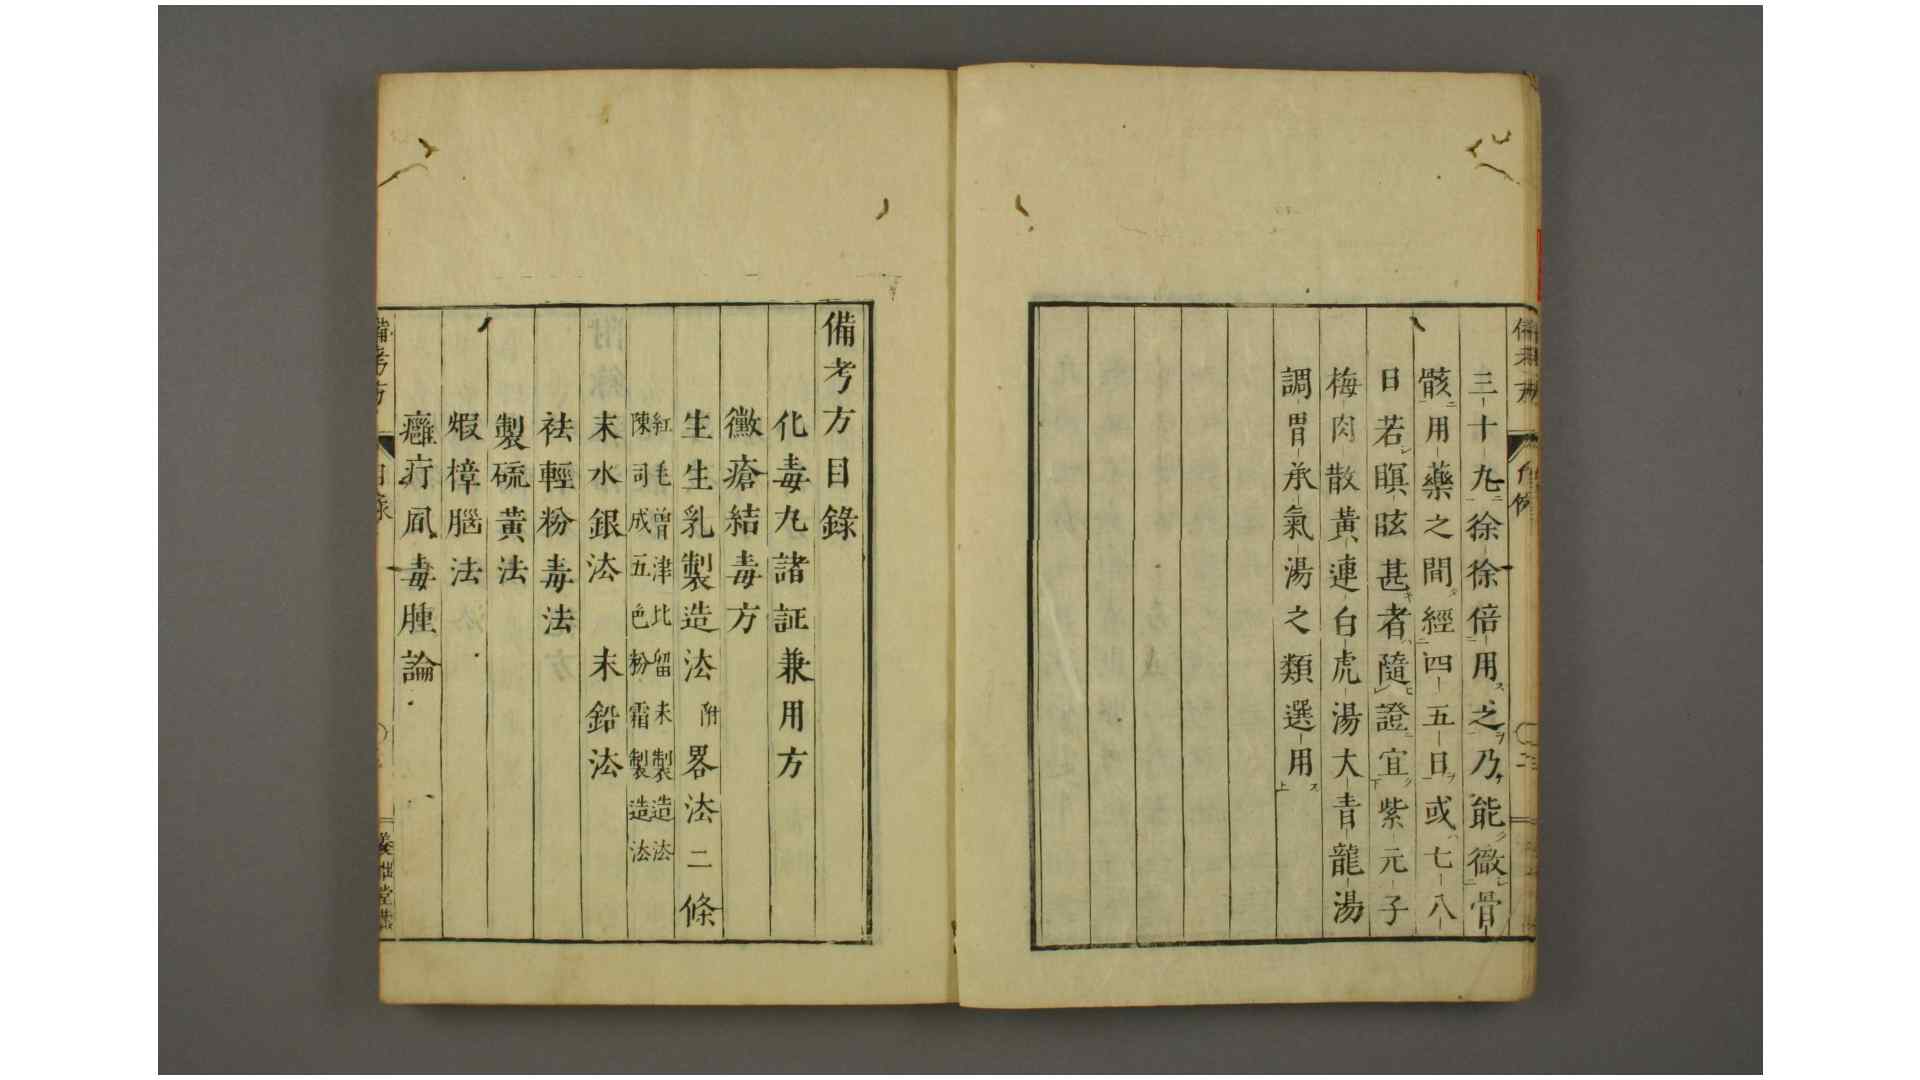 三十九徐徐倍用之乃能徹骨
骸用藥之間經四五日或七八
日若瞑眩甚者隨證宜紫元子
梅肉散黃連白虎湯大青龍湯
調胃承氣湯之類選用
備考方目錄
化毒丸諸証兼用方
黴瘡結毒方
生生乳製造法 附畧法二條
紅毛曾津比留末製造法
陳司成五色粉霜製造法
末水銀法 末鉛法
袪輕粉毒法
製硫黃法
煆樟腦法
癰疔風毒腫論
備考方
目錄